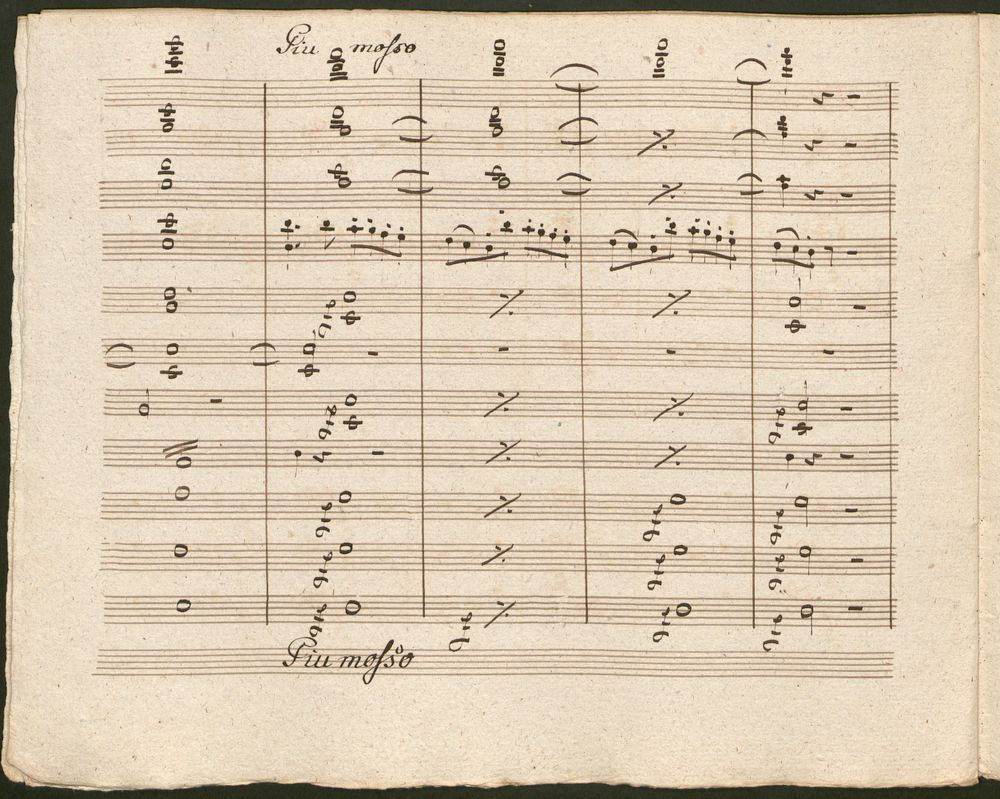 Piu mosso
Piu mosso